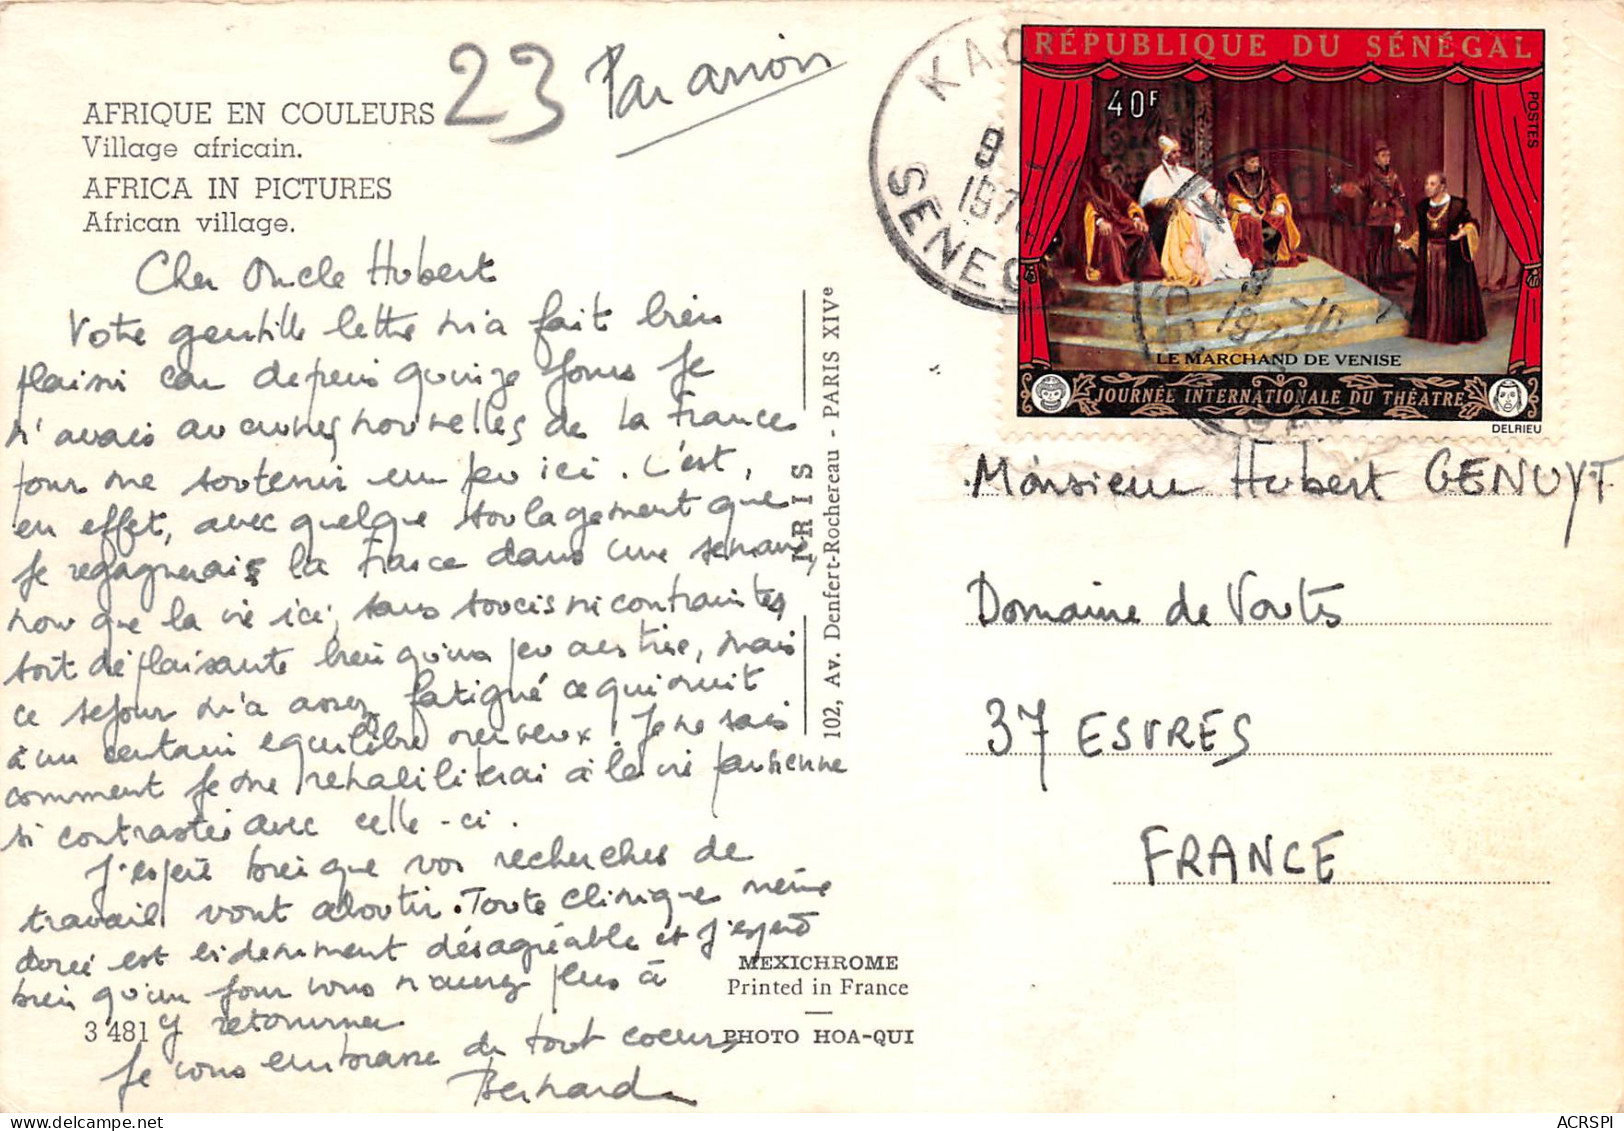 23 Par avion
AFRIQUE EN COULEURS
Village africain.
AFRICA IN PICTURES
African village.
Cher Oncle Hubert
Votre gentille lettre m'a fait bien
plaisir car depuis quinze jours je
n'avais aucunes nouvelles de la France
pour me soutenir un peu ici. C'est,
en effet, avec quelque soulagement que
je regagnerais la France dans une semaine,
non que la vie ici, sans soucis ni contraintes,
soit déplaisante bien qu'un peu austère, mais
ce séjour m'a assez fatigué ce qui nuit
à un certain équilibre nerveux. Je ne sais
comment je me rehabiliterai à la vie parisienne
si contrastée avec celle-ci.
J'espère bien que vos recherches de
travail vont aboutir. Toute clinique même
dorée est évidemment désagréable et j'espère
bien qu'un jour vous n'aurez plus à
y retourner
Je vous embrasse de tout coeur
Bernard
3 481
IRIS
102, Av. Denfert-Rochereau - PARIS XIVe
MEXICHROME
Printed in France
PHOTO HOA-QUI
KAO
8
197
SENEG
RÉPUBLIQUE DU SÉNÉGAL
40F
POSTES
LE MARCHAND DE VENISE
JOURNÉE INTERNATIONALE DU THÉATRE
DELRIEU
Monsieur Hubert GENUYT
Domaine de Vontes
37 ESVRES
FRANCE
ACRSPI